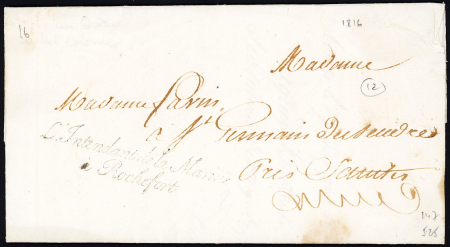 16
1816
Madame
12
Madame Savin
à St Germain Du Seudre
L'Intendant de la Marine
à Rochefort
Près Saintes